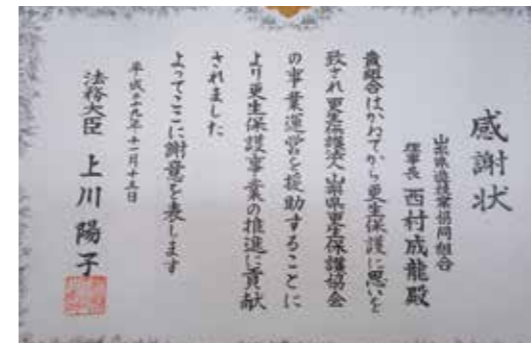 感謝状
山梨県遊技業協同組合
理事長 西村成龍殿
貴組合はかねてから更生保護に思いを
致され更生保護法人山梨県更生保護協会
の事業運営を援助することに
より更生保護事業の推進に貢献
されました
よってここに謝意を表します
平成二十九年十一月十五日
法務大臣 上川陽子